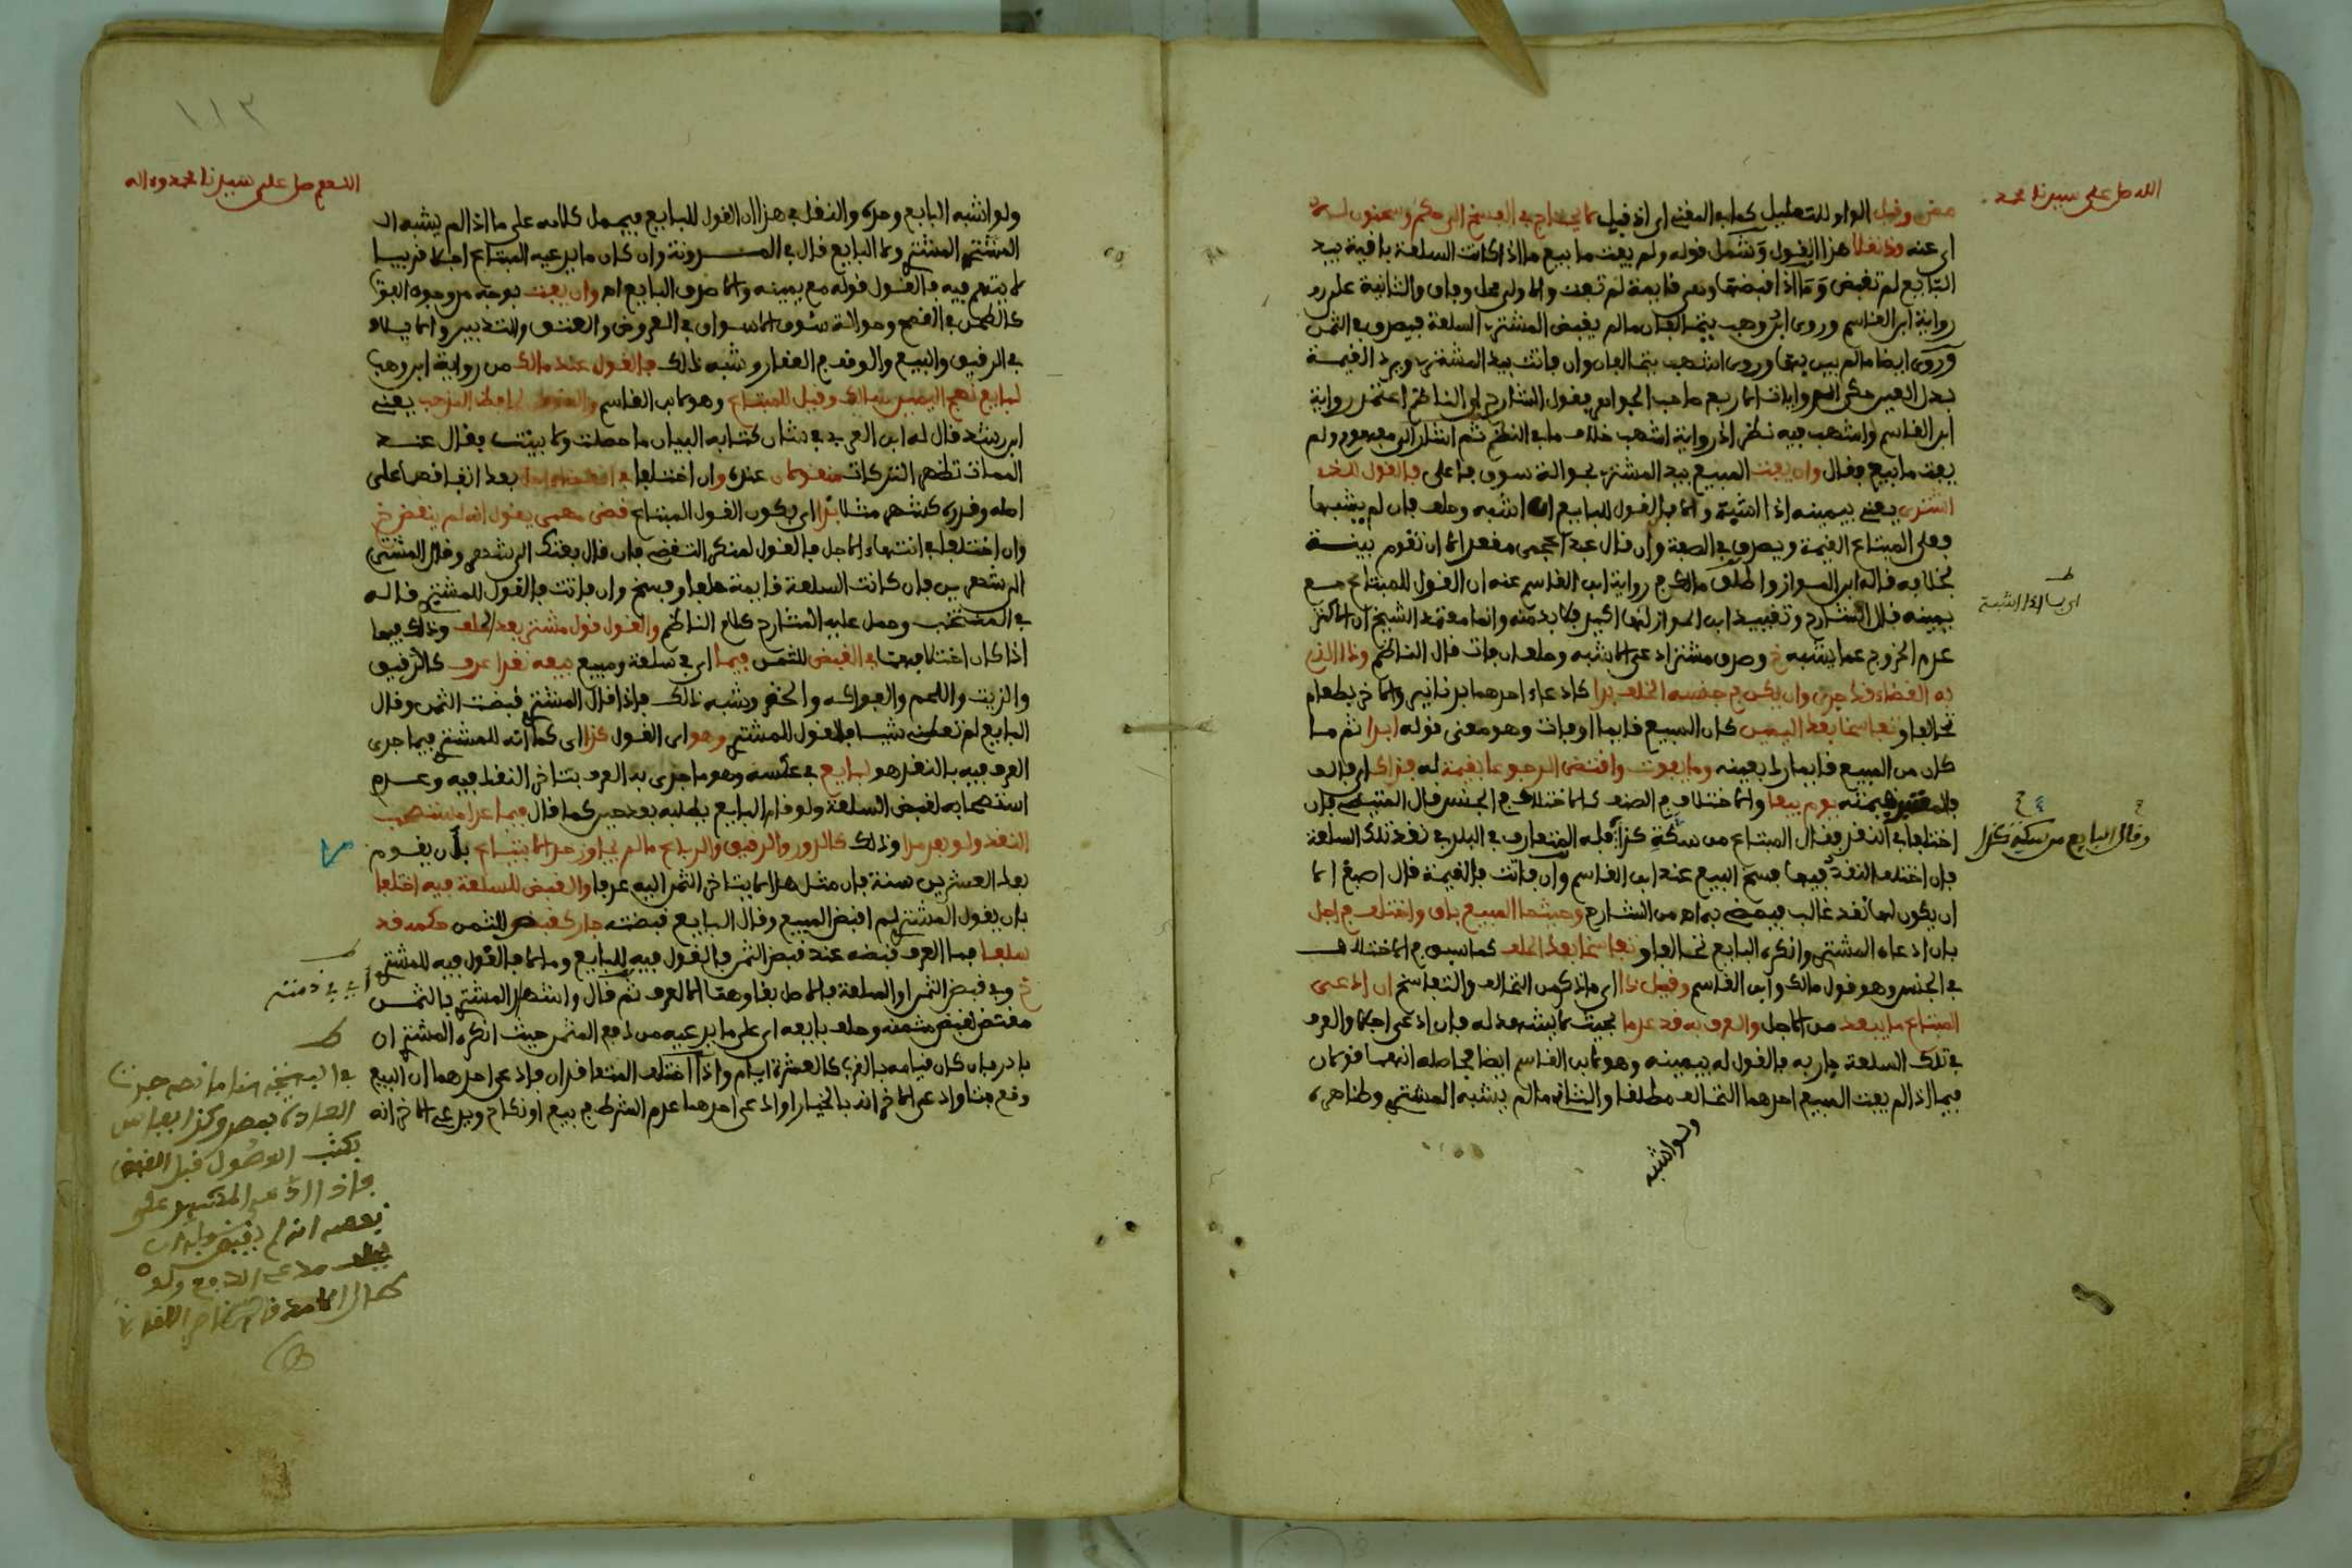 اللهم صل على سيدنا محمد
مضى وقيل الواو للتعليل كما في المغني اي اذ قيل لا يحتاج في الفسخ الى حكم وسحنون
اي عنه وذا نقلا هذا القول وشمل قوله ولم يفت ما بيع ما اذا كانت السلعة باقية بيد
البايع لم تقبض وما اذا قبضها وهي قايمة لم تفت والاولى محل وفاق والثانية على رد
رواية ابن القاسم وروى ابن وهب يتحالفان ما لم يقبض المشتري السلعة فيصدق في الثمن
وروى ايضا ما لم يبن بها وروى اشهب يتحالفان وان فاتت بيد المشتري ويرد القيمة
بدل العين حكى الروايات الاربع صاحب الجواهر فقول الشارح ان الناظم اعتمد رواية
ابن القاسم واشهب فيه نظر اذ رواية اشهب خلاف ما في النظم ثم اشار الى مفهوم ولم
يفت ما بيع فقال وان يفت المبيع بيد المشتري بحوالة سوق فاعلى فالقول للذي
اشترى يعني بيمينه اذا اشبه والا فالقول للبايع ان اشبه وحلف فان لم يشبها
فعلى المبتاع القيمة ويصدق في الصفة وان قال عبد اعجمي مقعد الا ان تقوم بينة
بخلافه قاله ابن المواز واطلق مالك في رواية ابن القاسم عنه ان القول للمبتاع مع
يمينه قال الشارح وتقييد ابن المواز لها اكيد فلا بد منه وانما معتمد الشيخ ان الاكثر
عدم الخروج عما يشبه خ وصدق مشتر ادعى الاشبه وحلف ان فات قال الناظم وذا الذي
به القضاء قد جرى وان يكن في جنسه الخلف بدا كادعاء احدهما بدنانير والاخر بطعام
تحالفا وتفاسخا بعد اليمين كان المبيع قايما او فات وهو معنى قوله ابدا ثم ما
كان من المبيع قايما رد بعينه وما يفوت واقتضى الرجوعا بقيمة له فذاك اي فالف
فالمعتبر قيمته يوم بيعا والاختلاف في الصنف كالاختلاف في الجنس قال المتيطي فان
اختلفا في النقد فقال المبتاع من سكة كذا فله المتعارف في البلد في نقد تلك السلعة
فان اختلف النقد فيها فسخ البيع عند ابن القاسم وان فاتت فالقيمة قال اصبغ الا
ان يكون لها نقد غالب فيقضى به اه من الشارح وحيثما المبيع باق واختلف في اجل
بان ادعاه المشتري وانكره البايع تحالفا وتفاسخا بعد الحلف كما سبق في الاختلاف
في الجنس وهو قول مالك وابن القاسم وقيل ذا اي ما ذكر من التحالف والتفاسخ ان ادعى
المبتاع ما يبعد من الاجل والعرف به قد عدما بحيث لا يشهد له فان ادعى اجلا والعرف
في تلك السلعة جار به فالقول له بيمينه وهو لابن القاسم ايضا فحاصله انهما قولان
فيما اذا لم يفت المبيع احدهما التحالف مطلقا والثاني ما لم يشبه المشتري وظاهره
ولو اشبه
اي اذا اشبه
وقال البايع من سكة كذا
١١٣
اللهم صل على سيدنا محمد وءاله
ولو اشبه البايع وحده والنقل في هذا ان القول للبايع فيحمل كلامه على ما اذا لم يشبه الا
المشتري ولا البايع قال في المدونة وان كان ما يدعيه المبتاع اجلا قريبا
لا يتهم فيه فالقول قوله مع يمينه والا صدق البايع اه وان يفت بوجه من وجوه الفوت
كالطحن في القمح وحوالة سوق الاسواق في العروض والعتق والتدبير والايلاد
في الرقيق والبيع والوقف في العقار وشبه ذلك فالقول عند مالك من رواية ابن وهب
لبايع نهج اليمين سالك وقيل للمبتاع وهو لابن القاسم يعني
ابن رشد قال له ابن العربي في شان كتابه البيان ما حصلت ولا بينت فقال عند
الممات تظهر التركات منقولان عنده وان اختلفا في بعد اتفاقهما على
اصله وقدره كشهر مثلا بدا اي يكون القول المبتاع قضى مهمى يقول انه لم ينقض خ
وان اختلفا في انتهاء الاجل فالقول لمنكر التقضي فان قال بعتك الى شهر وقال المشتري
الى شهرين فان كانت السلعة قايمة حلفا وفسخ وان فاتت فالقول للمشتري قاله
في المنتخب وحمل عليه الشارح كلام الناظم والقول قول مشتر بعد الحلف وذلك فيما
اذا كان اختلافهما في القبض للثمن فيما اي في سلعة ومبيع بيعه نقدا عرف كالرقيق
والزيت واللحم والفواكه والخضر وشبه ذلك فاذا قال المشتري قبضت الثمن وقال
البايع لم تعطني شيا فالقول للمشتري وهو اي القول كذا اي كما انه للمشتري فيما جرى
العرف فيه بالنقد هو لبايع في عكسه وهو ما جرى به العرف بتاخر النقد فيه وعدم
استصحابه لقبض السلعة ولو قام البايع يطلبه بعد حين كما قال فيما عدا مستصحب
النقد ولو بعد مدا وذلك كالدور والرقيق والرباع ما لم يجاوز حد الابتياع بان يقوم
بعد العشرين سنة فان مثل هذا لا يتاخر الثمن اليه عرفا والقبض للسلعة فيه اختلفا
بان يقول المشتري لم اقبض المبيع وقال البايع قبضته جار كقبض للثمن حكمه قد
سلفا فما العرف قبضه عند قبض الثمن فالقول فيه للبايع وما لا فالقول فيه للمشتري
خ وفي قبض الثمن او السلعة فالاصل بقاوهما الا لعرف ثم قال واشهاد المشتري بالثمن
مقتض لقبض مثمنه وحلف بايعه اي على ما يدعيه من دفع المثمن حيث انكره المشتري ان
بادر فان كان قيامه بالقرب كالعشرة ايام واذا اختلف المتعاقدان فادعى احدهما ان البيع
وقع بتا وادعى الاخر انه بالخيار او ادعى احدهما عدم الشرط في بيع او نكاح ويدعي الاخر انه
اي في ذمته
العادة بمصر وكذا بفاس
بكتب الوصول قبل القبض
فاذا ادعى المكتوب على
نفسه انه لم يقبض
مدعي الدفع